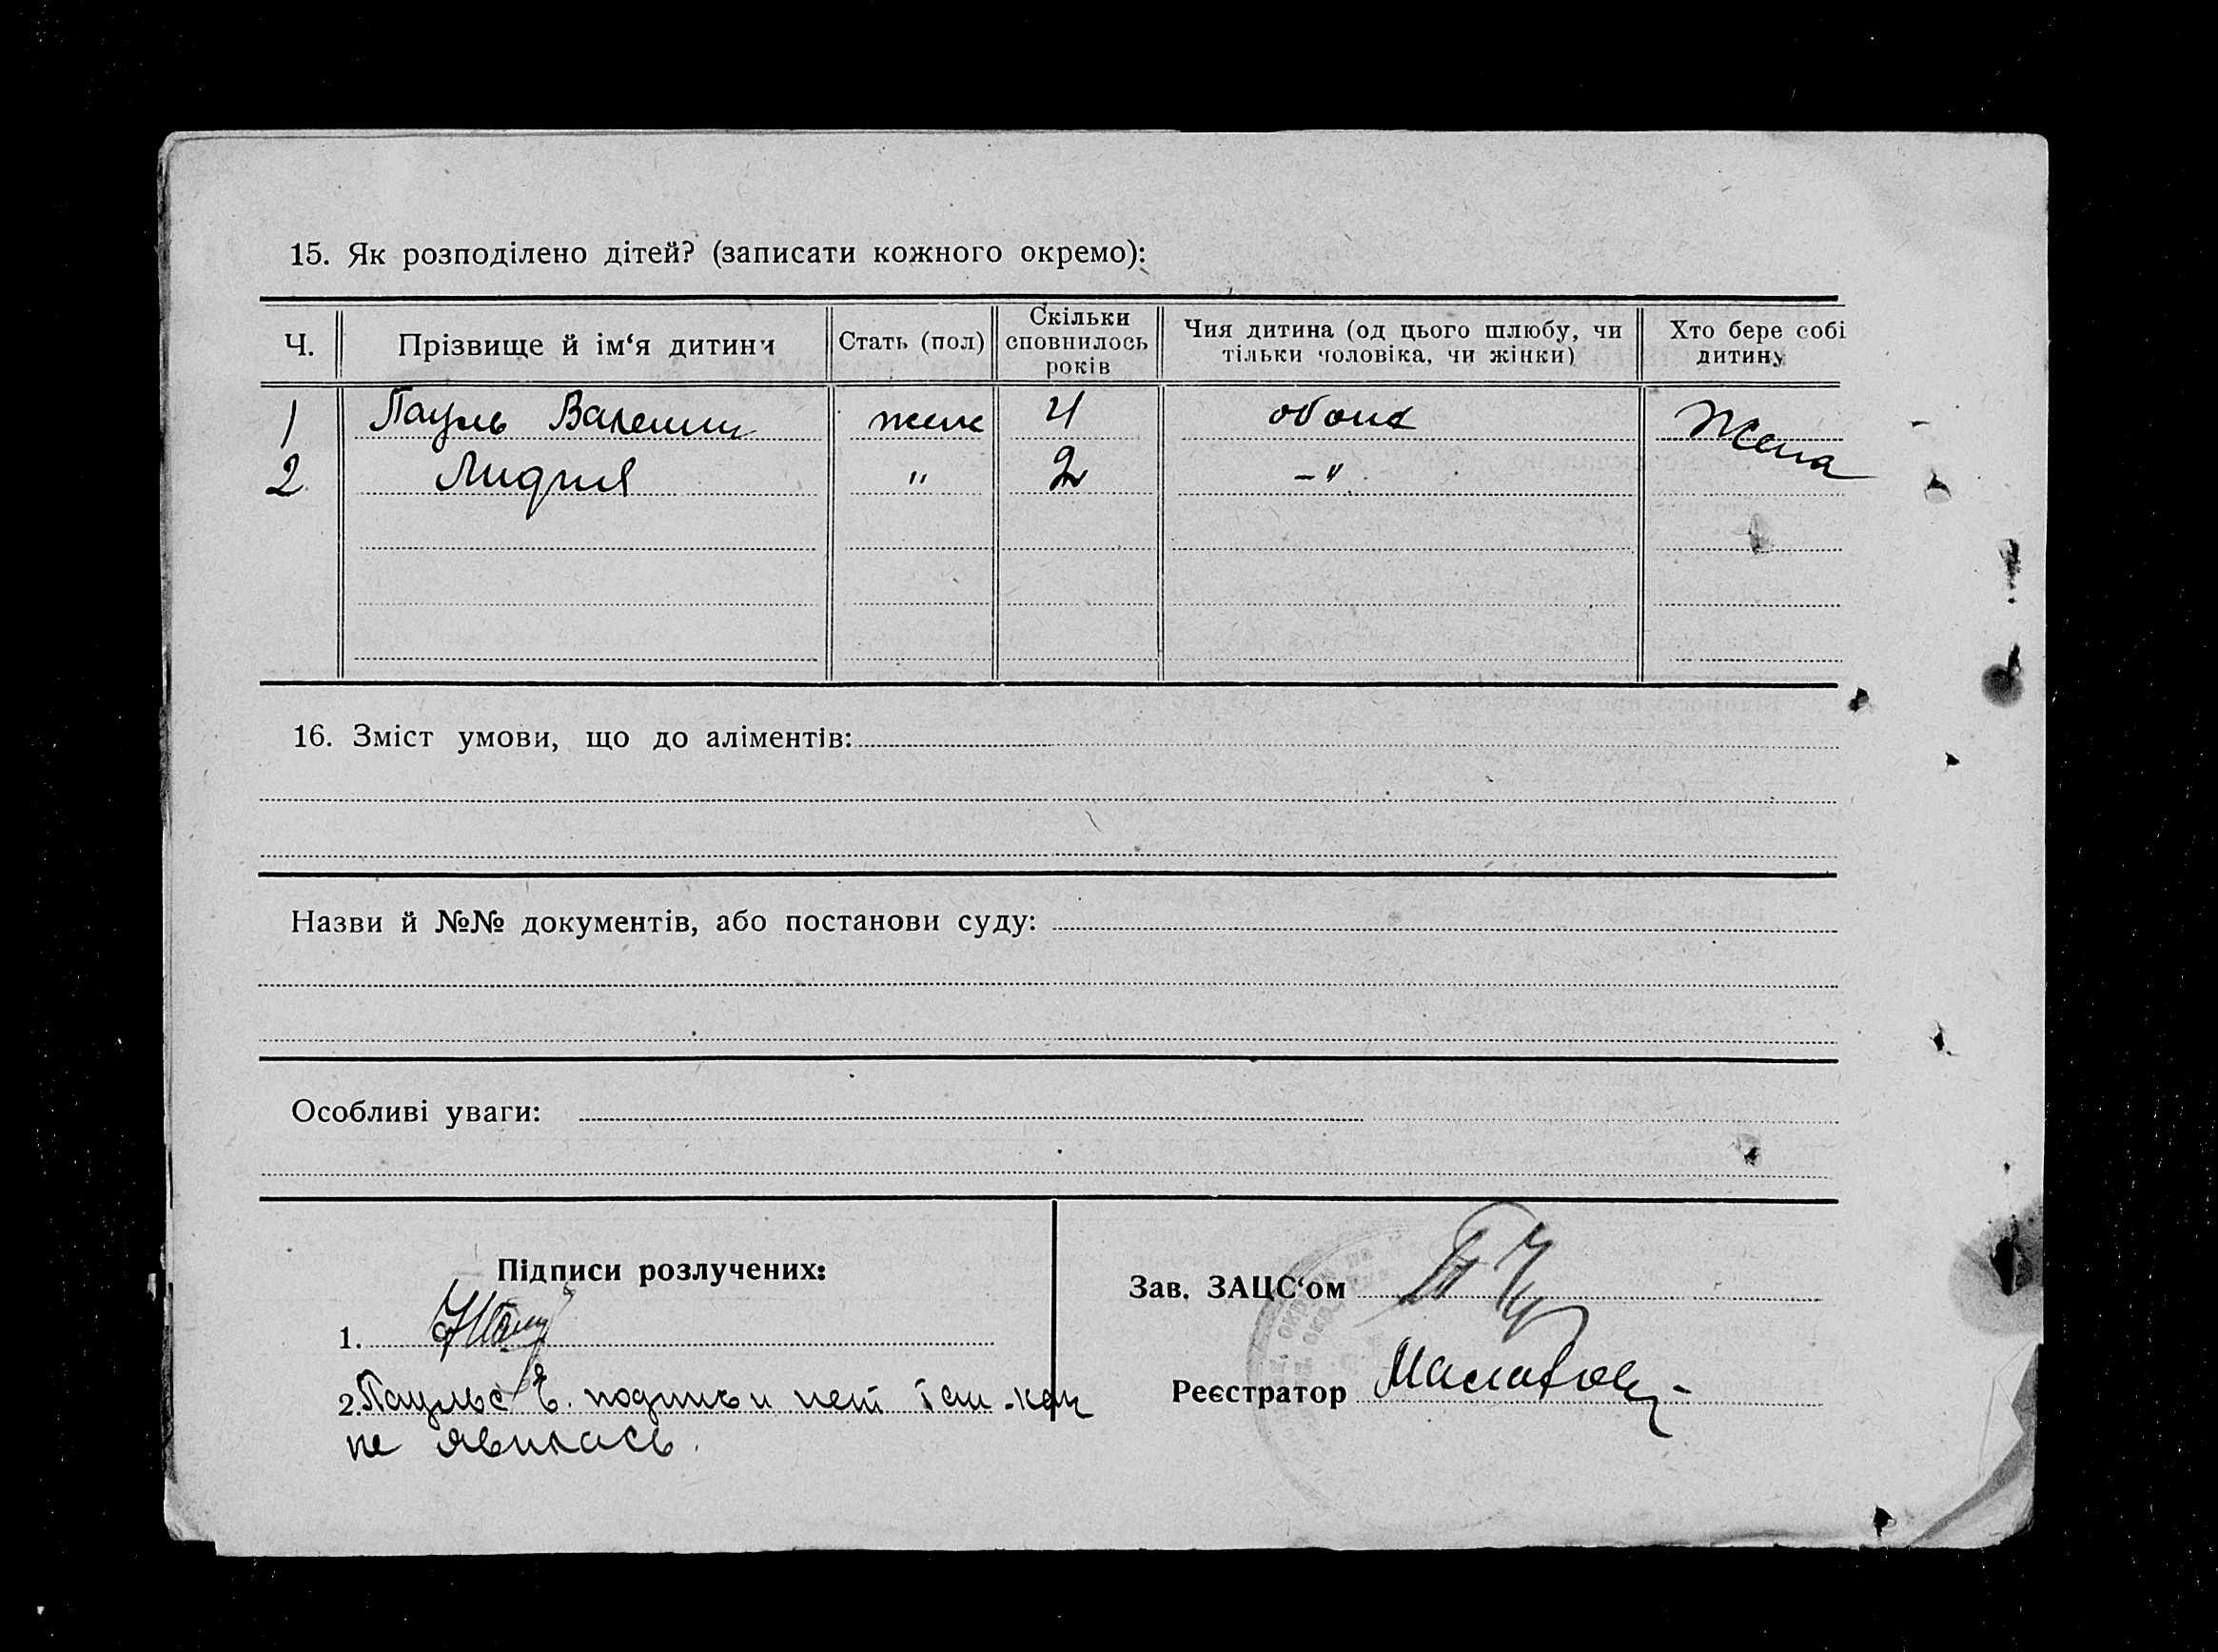 15. Як розподілено дітей? (записати кожного окремо):
Ч. Прізвище й ім‘я дитини Стать (пол) Скільки сповнилось років Чия дитина (од цього шлюбу, чи тільки чоловіка, чи жінки) Хто бере собі дитину
1 Пауль жен 4 Жена
2 Лидия " 2 -"
16. Зміст умови, що до аліментів:
Назви й №№ документів, або постанови суду:
Особливі уваги:
Підписи розлучених:
Зав. ЗАЦС‘ом
1.
2. Паульс Е. подписи нет так-как
Реєстратор
не явилась.